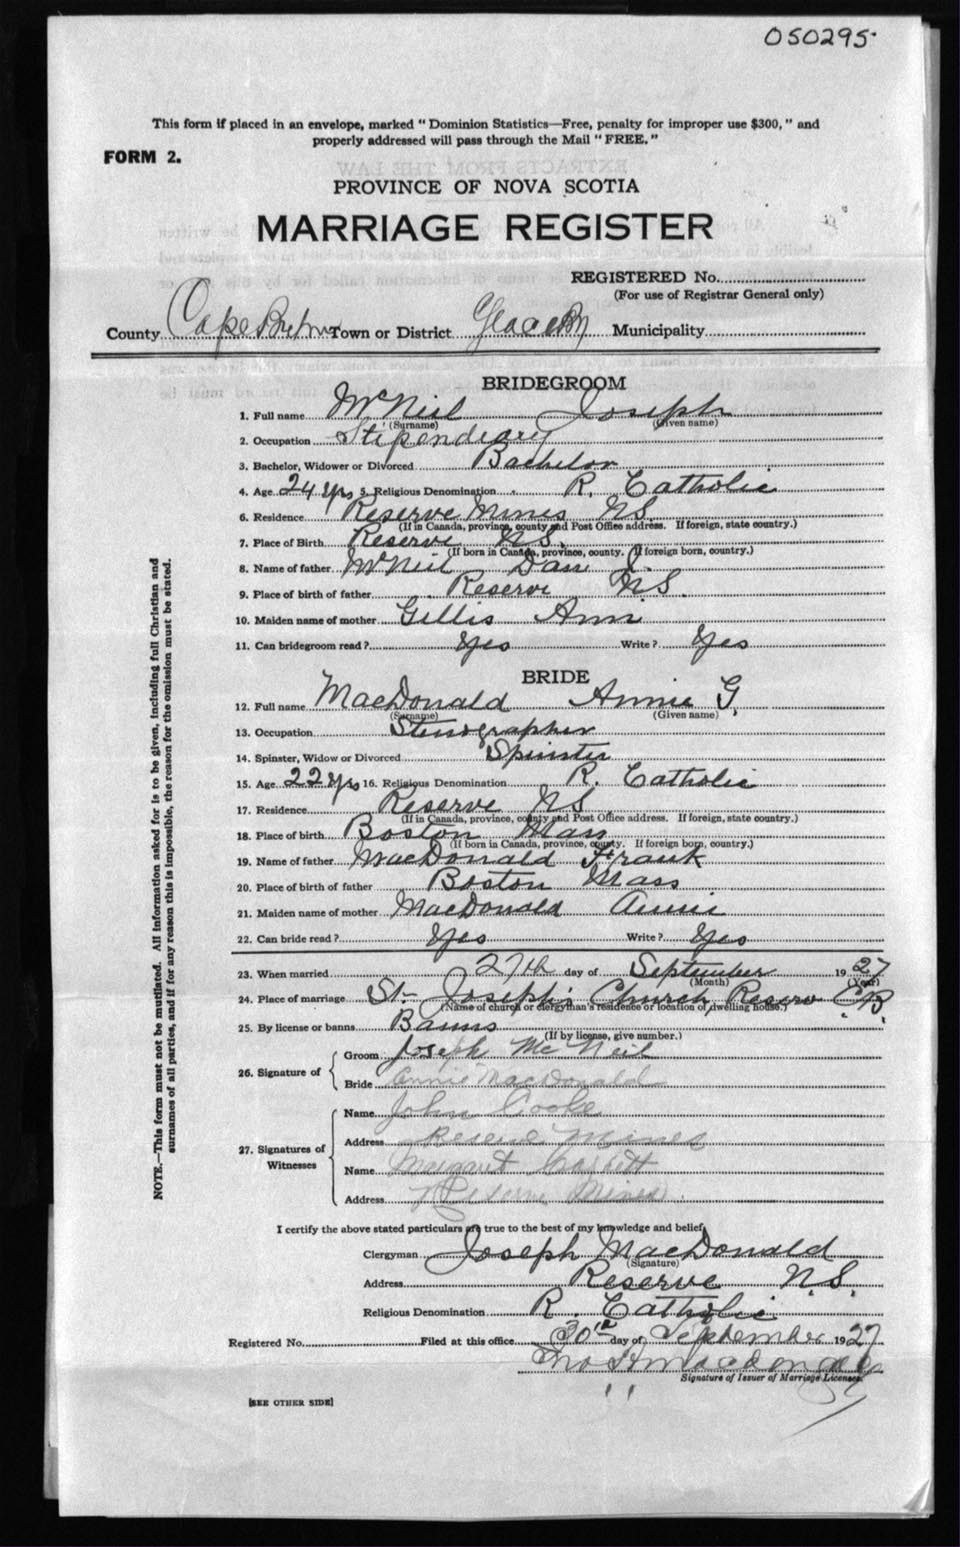 050295
This form if placed in an envelope, marked "Dominion Statistics—Free, penalty for improper use $300," and
properly addressed will pass through the Mail "FREE."
FORM 2.
PROVINCE OF NOVA SCOTIA
MARRIAGE REGISTER
REGISTERED No.
(For use of Registrar General only)
County Cape Breton Town or District Glace By Municipality
BRIDEGROOM
1. Full name McNeil Joseph
(Surname) (Given name)
2. Occupation Stipendeary
3. Bachelor, Widower or Divorced Bachelor
4. Age 24 yrs 5. Religious Denomination R. Catholic
6. Residence Reserve Mines N.S.
(If in Canada, province, county and Post Office address. If foreign, state country.)
7. Place of Birth Reserve N.S.
(If born in Canada, province, county. If foreign born, country.)
8. Name of father McNeil Dan J.
9. Place of birth of father Reserve N.S.
10. Maiden name of mother Gillis Ann
11. Can bridegroom read? Yes Write? Yes
BRIDE
12. Full name MacDonald Annie G.
(Surname) (Given name)
13. Occupation Stenographer
14. Spinster, Widow or Divorced Spinster
15. Age 22 yrs 16. Religious Denomination R. Catholic
17. Residence Reserve NS
(If in Canada, province, county and Post Office address. If foreign, state country.)
18. Place of birth Boston Mass
(If born in Canada, province, county. If foreign born, country.)
19. Name of father MacDonald Frank
20. Place of birth of father Boston Mass
21. Maiden name of mother MacDonald Annie
22. Can bride read? Yes Write? Yes
23. When married 27th day of September 1927
(Month) (Year)
24. Place of marriage St. Joseph's Church Reserve C.B.
(Name of church or clergyman's residence or location of dwelling house.)
25. By license or banns Banns
(If by license, give number.)
26. Signature of Groom Joseph McNeil
Bride Annie MacDonald
27. Signatures of Witnesses Name John Cooke
Address Reserve Mines
Name Margaret
Address Reserve Mines
I certify the above stated particulars are true to the best of my knowledge and belief,
Clergyman Joseph MacDonald
(Signature)
Address Reserve N.S.
Religious Denomination R. Catholic
Registered No. Filed at this office 30th day of September 1927
Signature of Issuer of Marriage Licenses
[SEE OTHER SIDE]
NOTE.—This form must not be mutilated. All information asked for is to be given, including full Christian and
surnames of all parties, and if for any reason this is impossible, the reason for the omission must be stated.